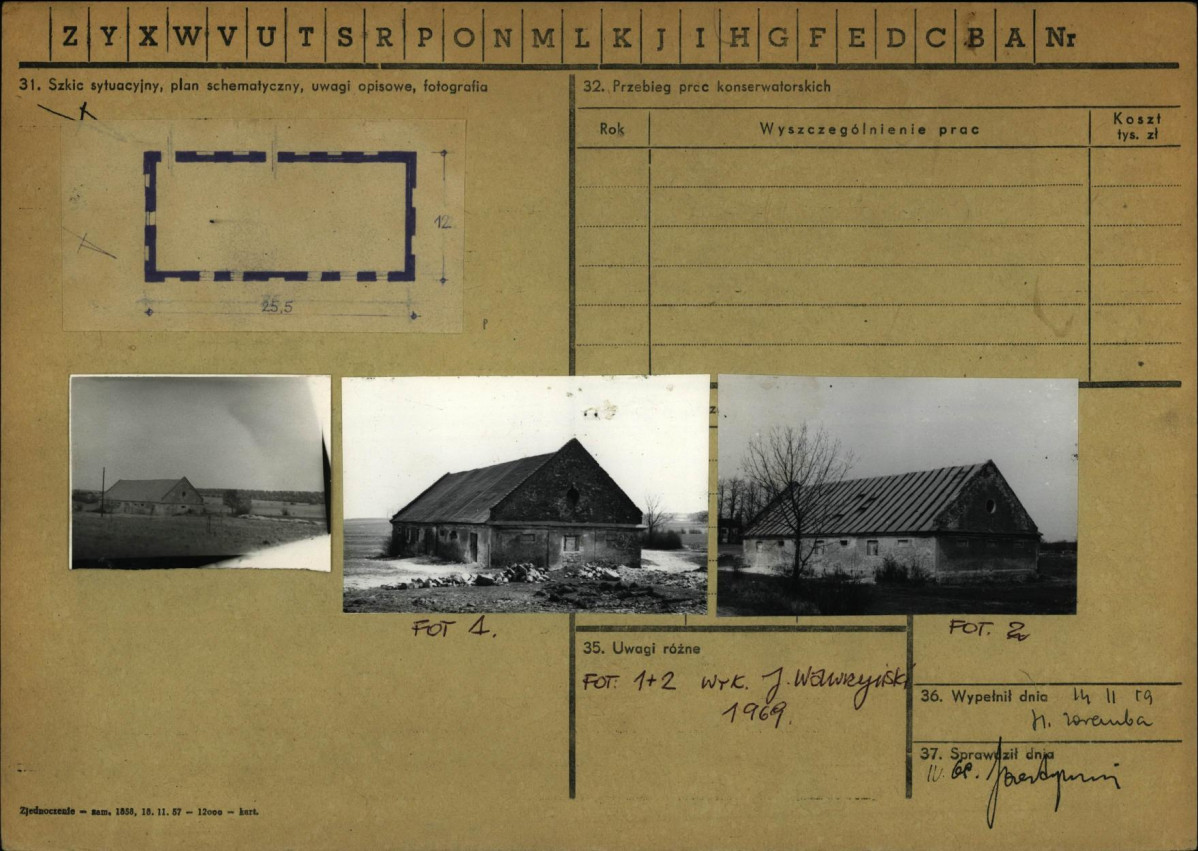 Z Y X W V U T S R P O N M L K J I H G F E D C B A Nr
31. Szkic sytuacyjny, plan schematyczny, uwagi opisowe, fotografia
12
25,5
FOT 1.
32. Przebieg prac konserwatorskich
Rok
Wyszczególnienie prac
Koszt
tys. zł
FOT. 2
35. Uwagi różne
FOT. 1+2 WYK. J. Wawrzyński
1969.
36. Wypełnił dnia 14 II 59
H. Zaremba
37. Sprawdził dnia
Zjednoczenie — zam. 1858, 18. 11. 57 — 12000 — kart.